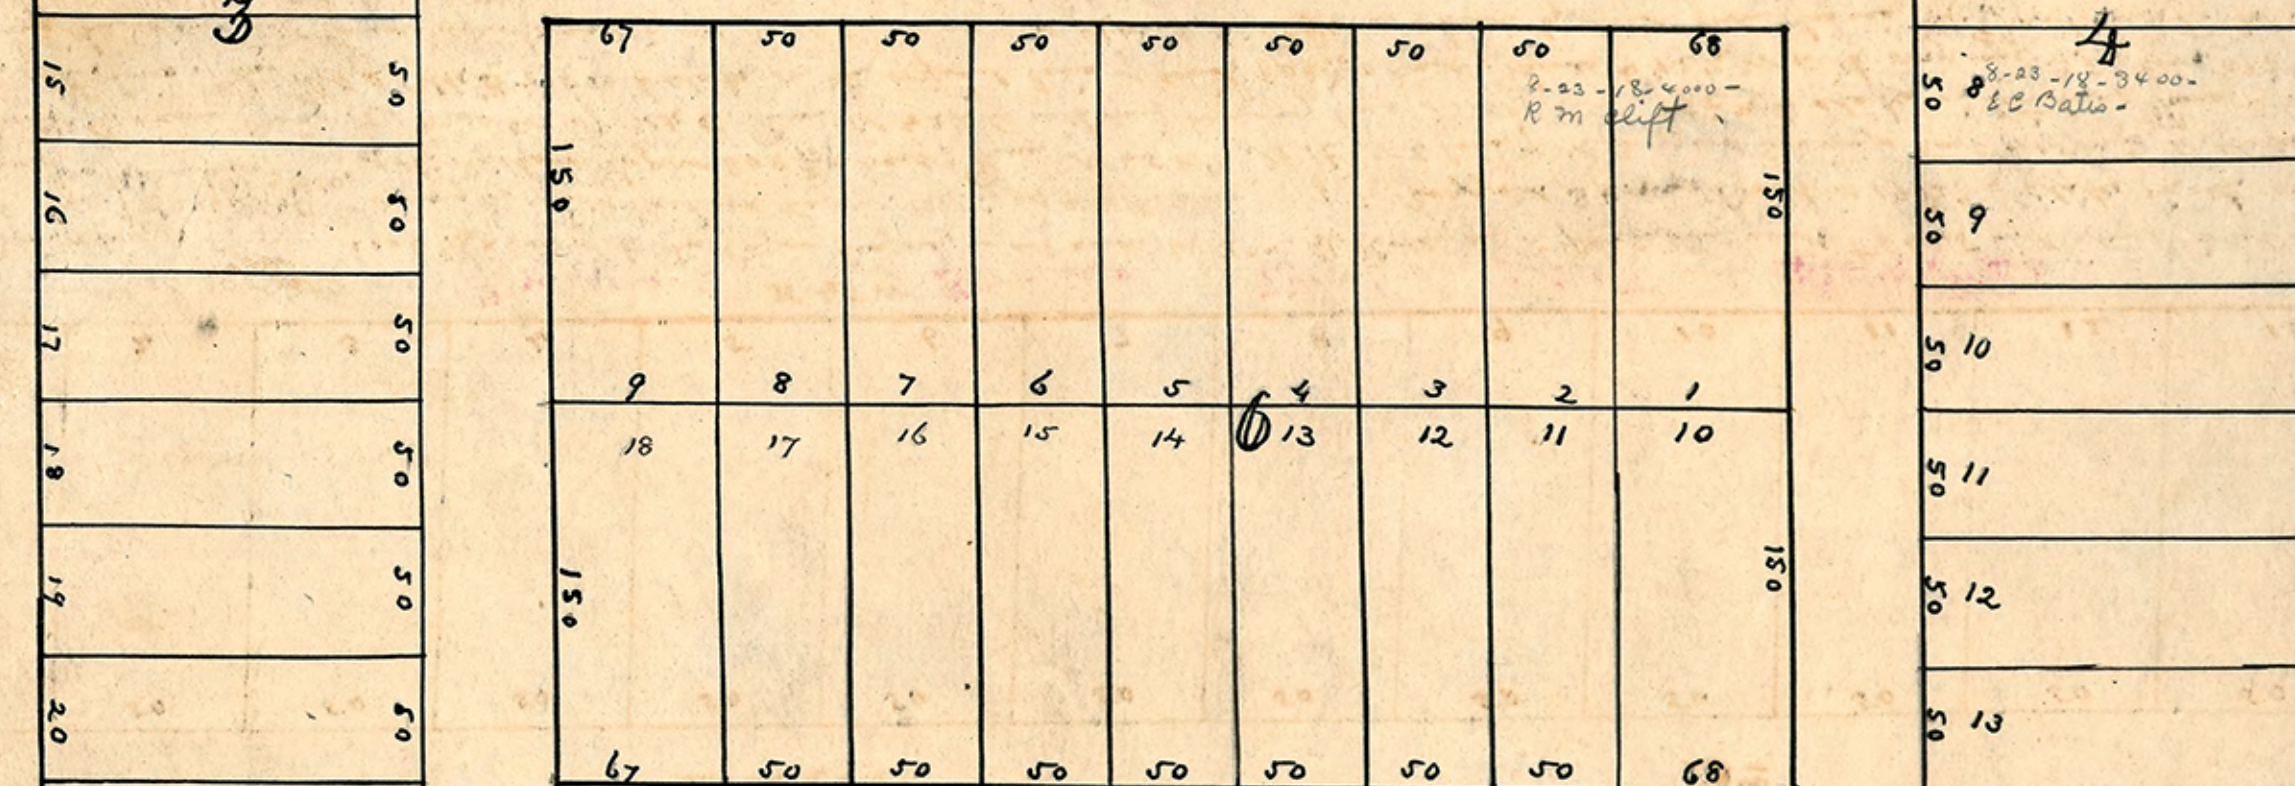 3
15 50
16 50
17 50
18 50
19 50
20 50
67 50 50 50 50 50 50 50 68
8-23-18-4000-
R M Clift
150 150
9 8 7 6 5 4 3 2 1
6
18 17 16 15 14 13 12 11 10
150 150
67 50 50 50 50 50 50 50 68
4
50 8 8-23-18-3400-
E C Batis-
50 9
50 10
50 11
50 12
50 13